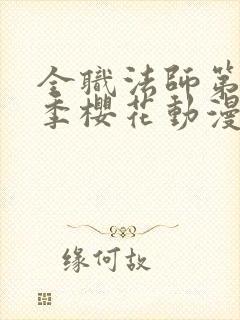 全職法師第
季櫻花動漫
缘何故